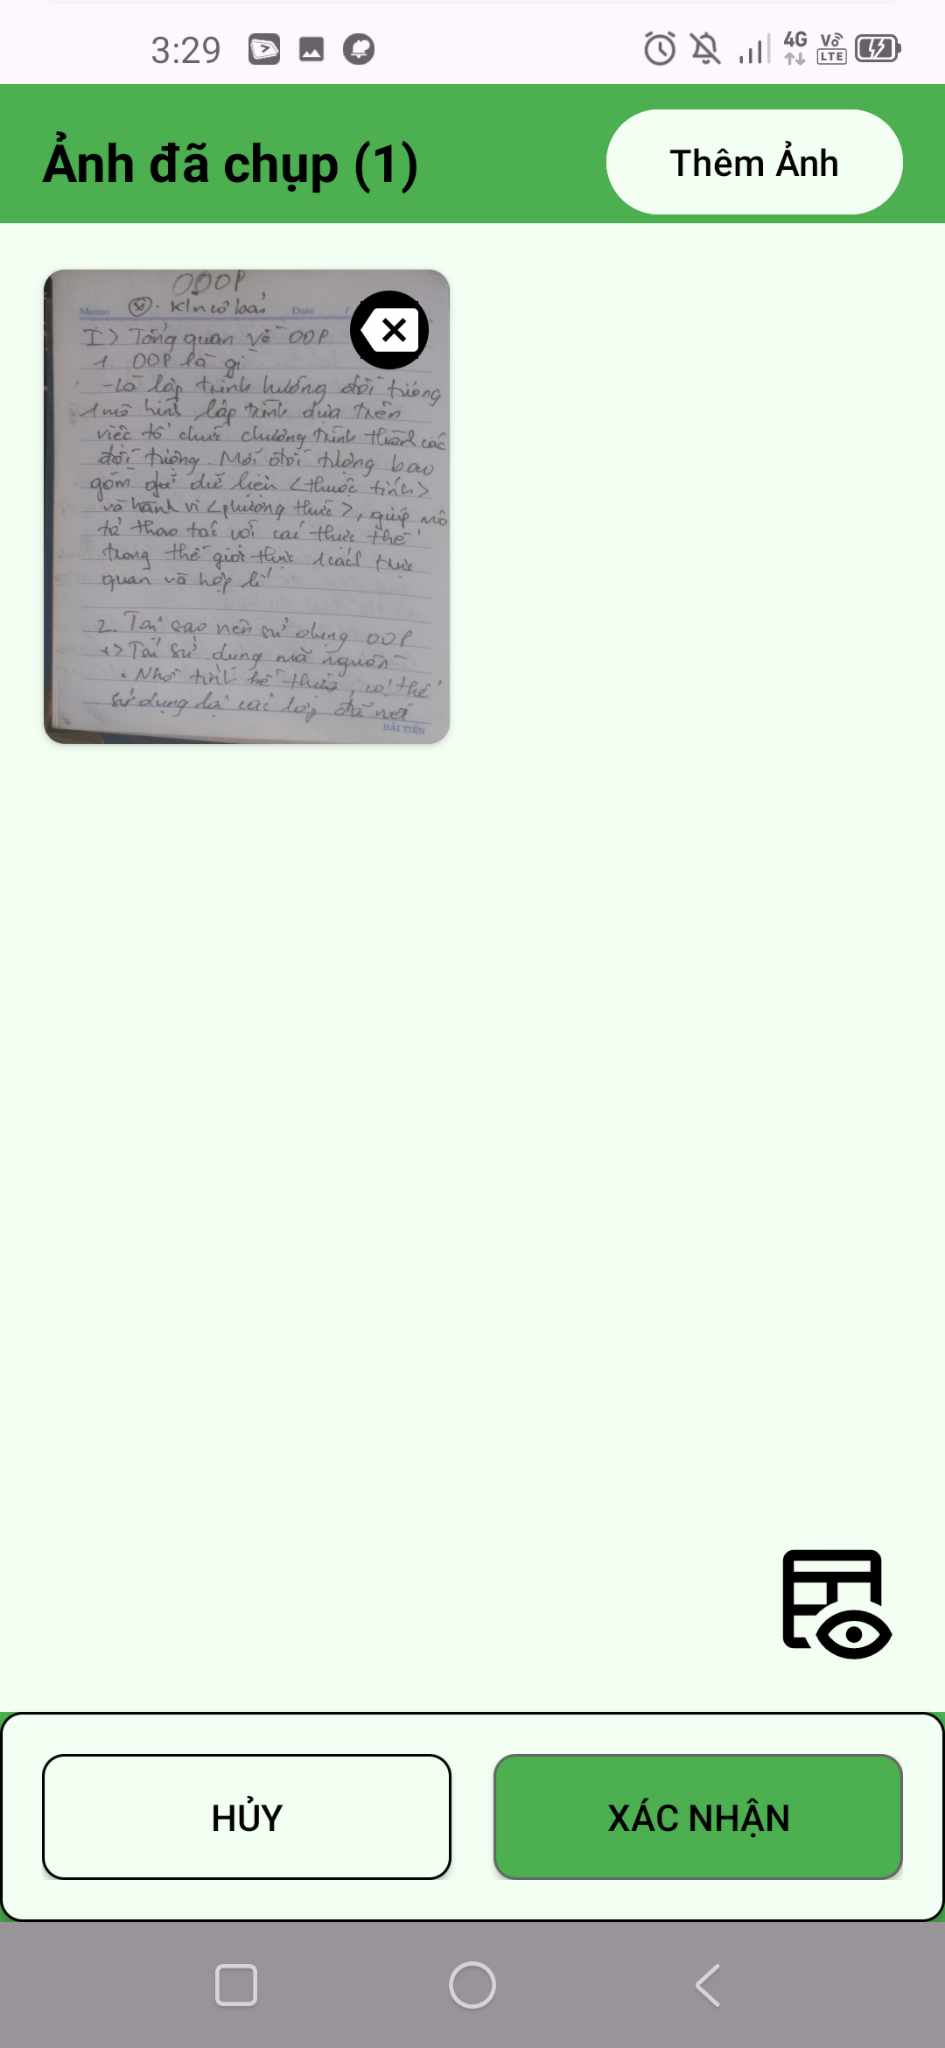 3:29
4G
Vo
LTE
Ảnh đã chụp (1)
Thêm Ảnh
OOOP
Memo
Date
I> Tổng quan về OOP
1. OOP là gì
- Là lập trình hướng đối tượng
1 mô hình lập trình dựa trên
việc tổ chức chương trình thành các
đối tượng. Mỗi đối tượng bao
gồm dữ liệu <thuộc tính>
và hành vi <phương thức>, giúp mô
tả thao tác với các thực thể
trong thế giới thực 1 cách trực
quan và hợp lí
2. Tại sao nên sử dụng OOP
+> Tái sử dụng mã nguồn
. Nhờ tính kế thừa, có thể
sử dụng lại các lớp đã
HẢI TIẾN
HỦY
XÁC NHẬN